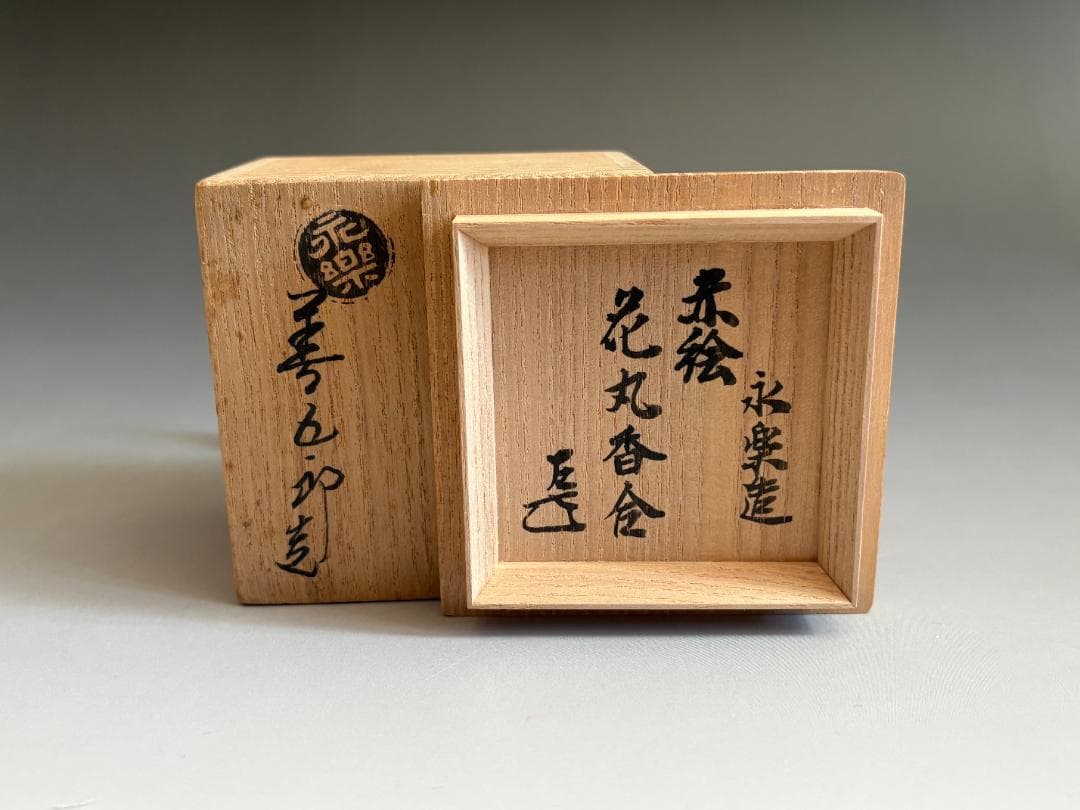 永樂
善五郎造
永楽造
赤絵
花丸香合